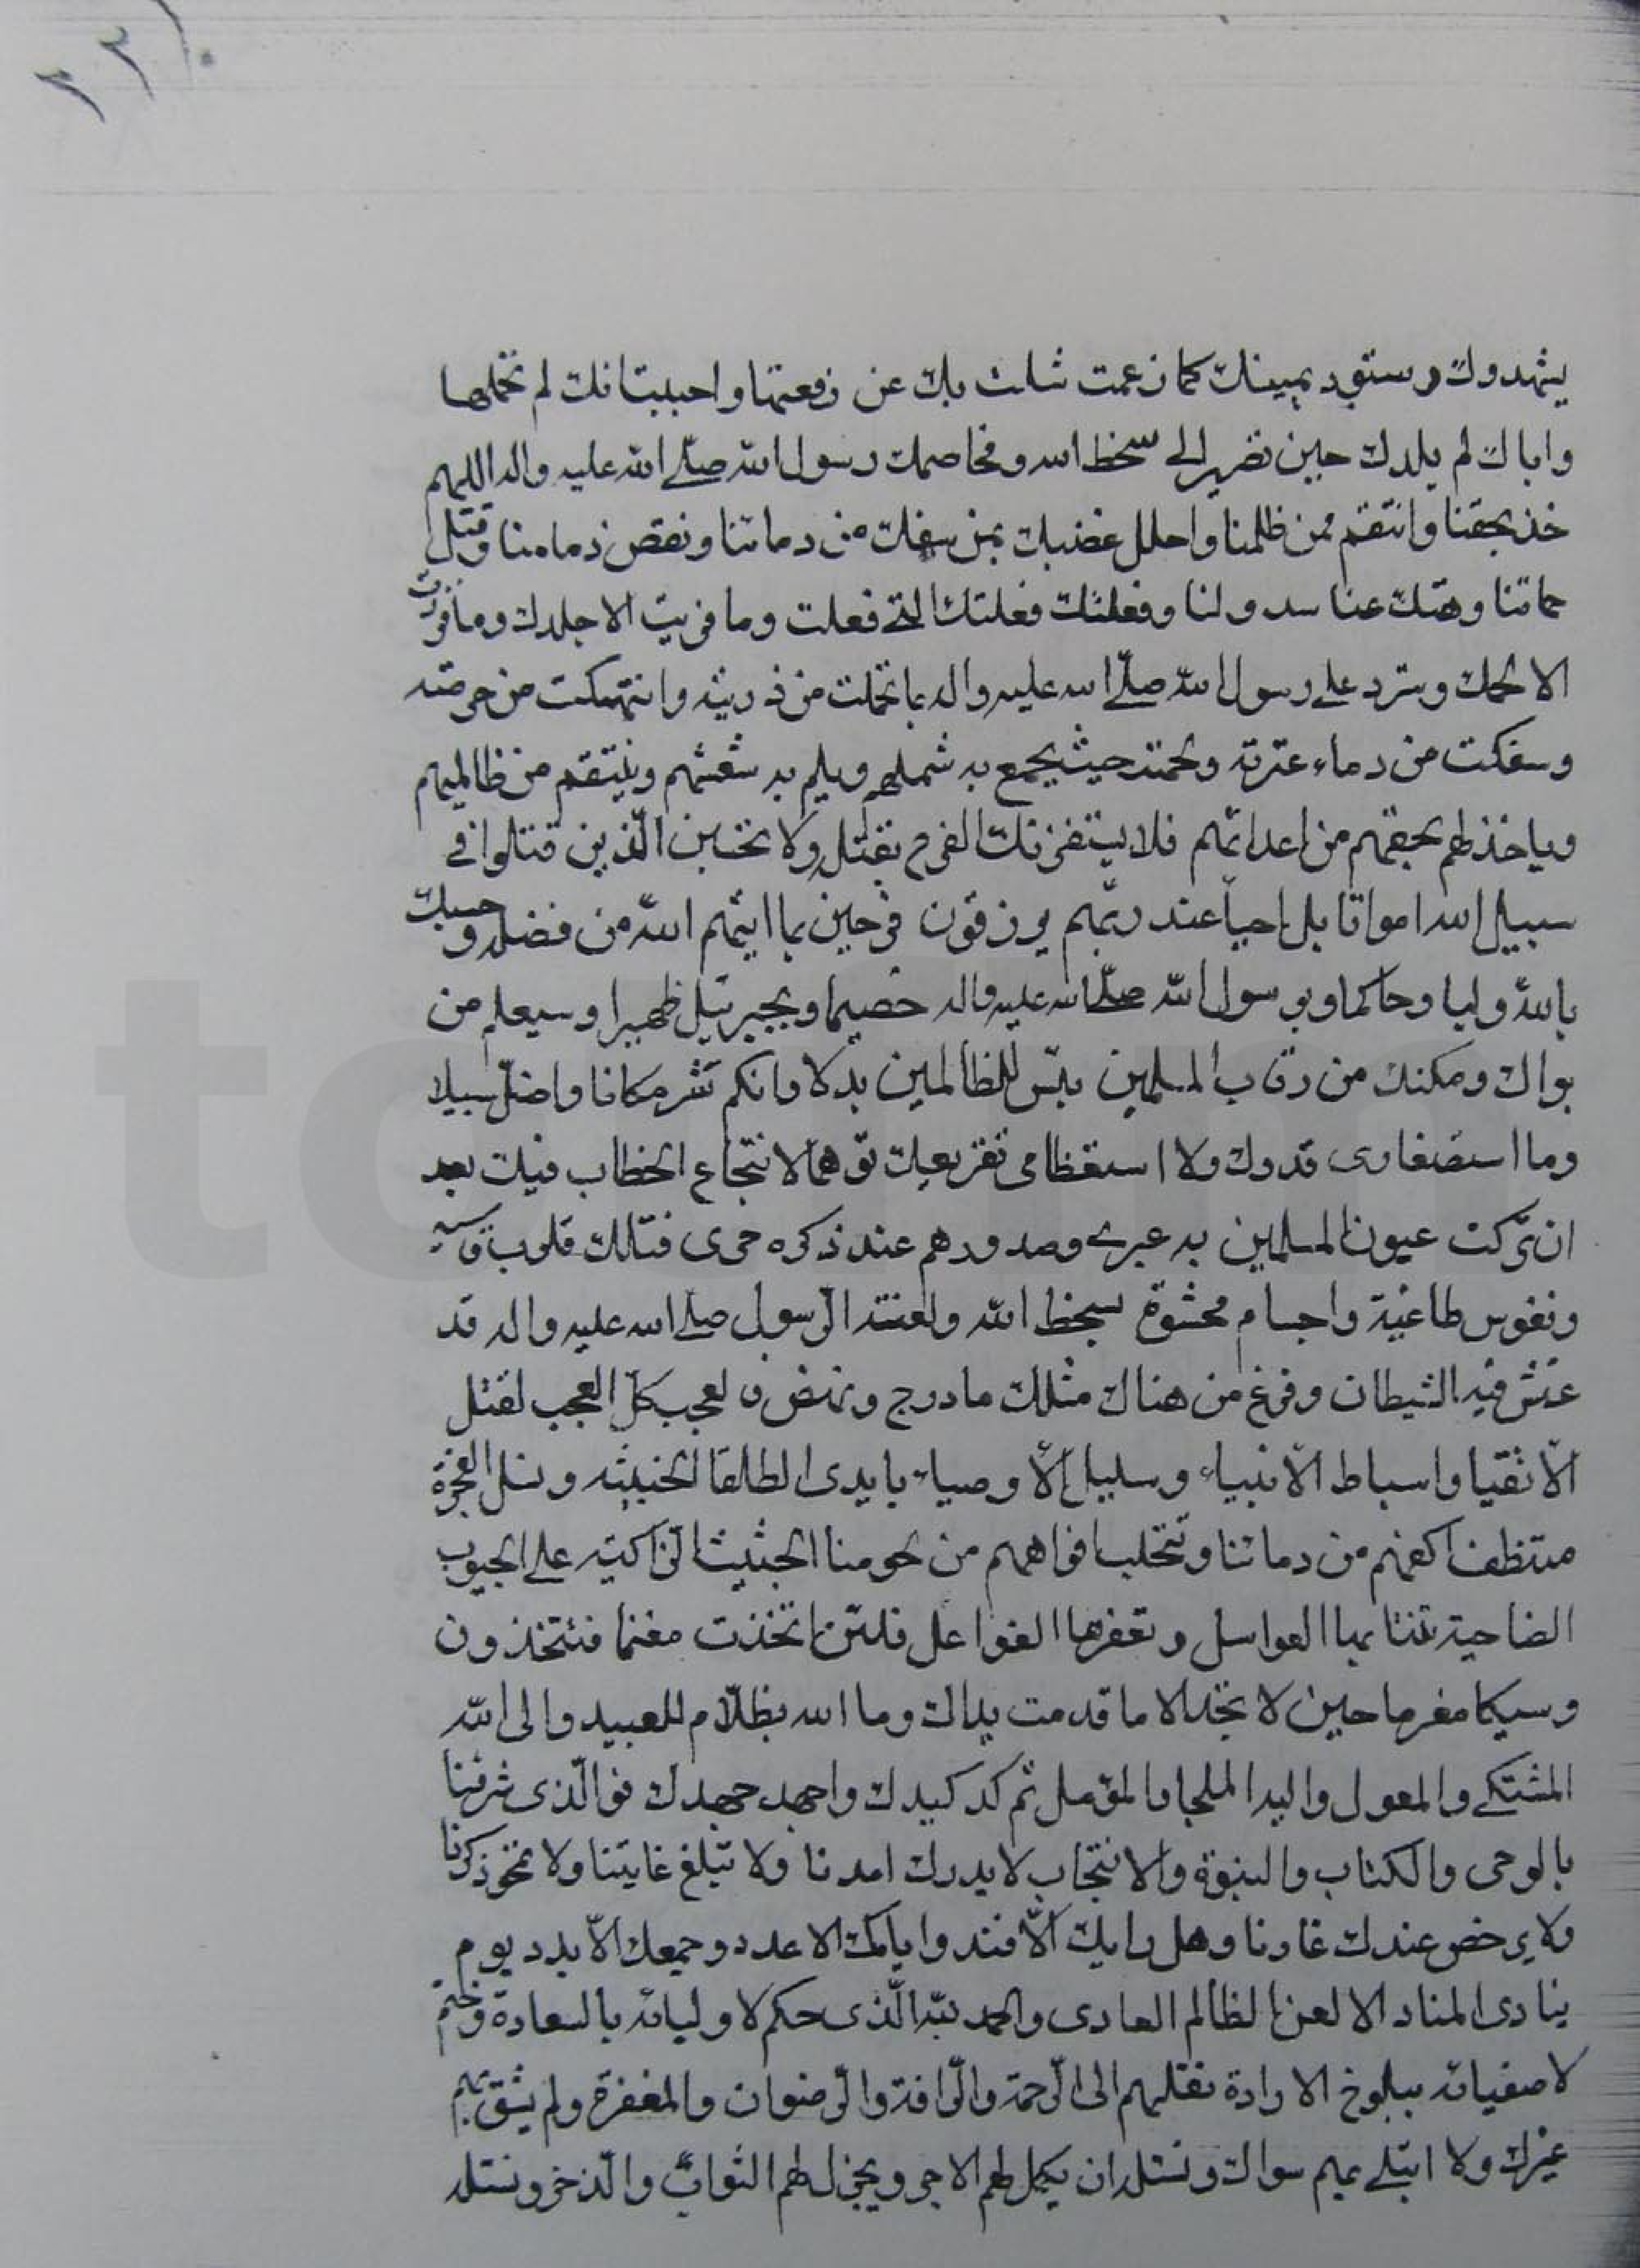 ٢٢١
يشهدوك وستود يمينك كما زعمت شلت بك عن رفعتها واحببت انك لم تحملها
واباك لم يلدك حين تضير الى سخط الله ومخاصمك رسول الله صلى الله عليه واله اللهم
خذ بحقنا وانتقم ممن ظلمنا واحلل غضبك بمن سفك من دمائنا ونقض ذمامنا وقتل
حماتنا وهتك عنا سدولنا وفعلت فعلتك التي فعلت وما فريت الا جلدك وما
الا لحمك وسترد على رسول الله صلى الله عليه واله بما تحملت من ذريته وانتهكت من حرمته
وسفكت من دماء عترته ولحمته حيث يجمع به شملهم ويلم به شعثهم وينتقم من ظالميهم
وياخذ لهم بحقهم من اعدائهم فلا يستفزنك الفرح بقتل ولا تحسبن الذين قتلوا في
سبيل الله امواتا بل احيا عند ربهم يرزقون فرحين بما اتيهم الله من فضله وحسبك
بالله وليا وحاكما وبرسول الله صلى الله عليه واله خصيما وبجبرئيل ظهيرا وسيعلم من
بواك ومكنك من رقاب المسلمين بئس للظالمين بدلا وانكم شر مكانا واضل سبيلا
وما استصغاري قدرك ولا استعظامي تقريعك توهما لانتجاع الخطاب فيك بعد
ان تركت عيون المسلمين به عبرى وصدورهم عند ذكره حرى فتلك قلوب قاسيه
ونفوس طاغية واجسام محشوة بسخط الله ولعنة الرسول صلى الله عليه واله قد
عشش فيه الشيطان وفرخ من هناك مثلك ما درج ونهض والعجب كل العجب لقتل
الاتقيا واسباط الانبياء وسليل الاوصياء بايدى الطلقا الخبيثه ونسل الفجرة
منتظف اكفهم من دمائنا وتتحلب افواههم من لحومنا الجثيث الزاكيه على الجيوب
الضاحية تنتابها العواسل وتعفرها الفواعل فلئن اتخذت مغنما فتتخذون
وسيكا مغرما حين لا تجد الا ما قدمت يداك وما الله بظلام للعبيد والى الله
المشتكى والمعول واليه الملجا والمؤمل ثم كد كيدك واجهد جهدك فو الذى شرفنا
بالوحى والكتاب والنبوة والانتجاب لا يدرك امدنا ولا تبلغ غايتنا ولا تمحو ذكرنا
ولا يرحض عندك عارنا وهل رايك الا فند وايامك الا عدد وجمعك الا بدد يوم
ينادى المناد الا لعن الظالم العادى والحمد لله الذى حكم لاوليائه بالسعادة وختم
لاصفيائه ببلوغ الارادة نقلهم الى الرحمة والرافة والرضوان والمغفرة ولم يشق بهم
غيرك ولا ابتلى بهم سواك ونسئله ان يكمل لهم الاجر ويجزل لهم الثواب والذخر ونسئله